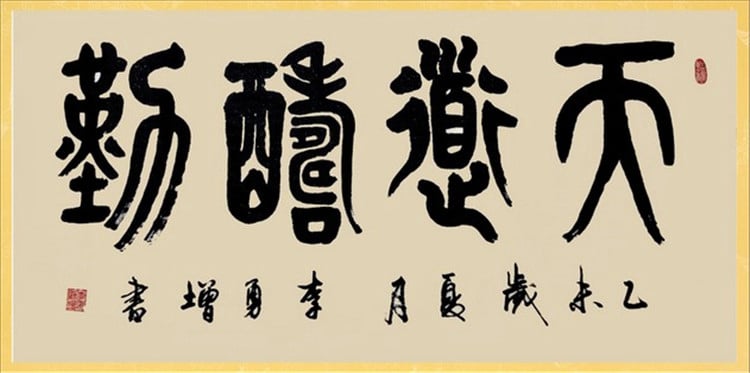 天道醻勤
乙未歲夏月 李勇增書